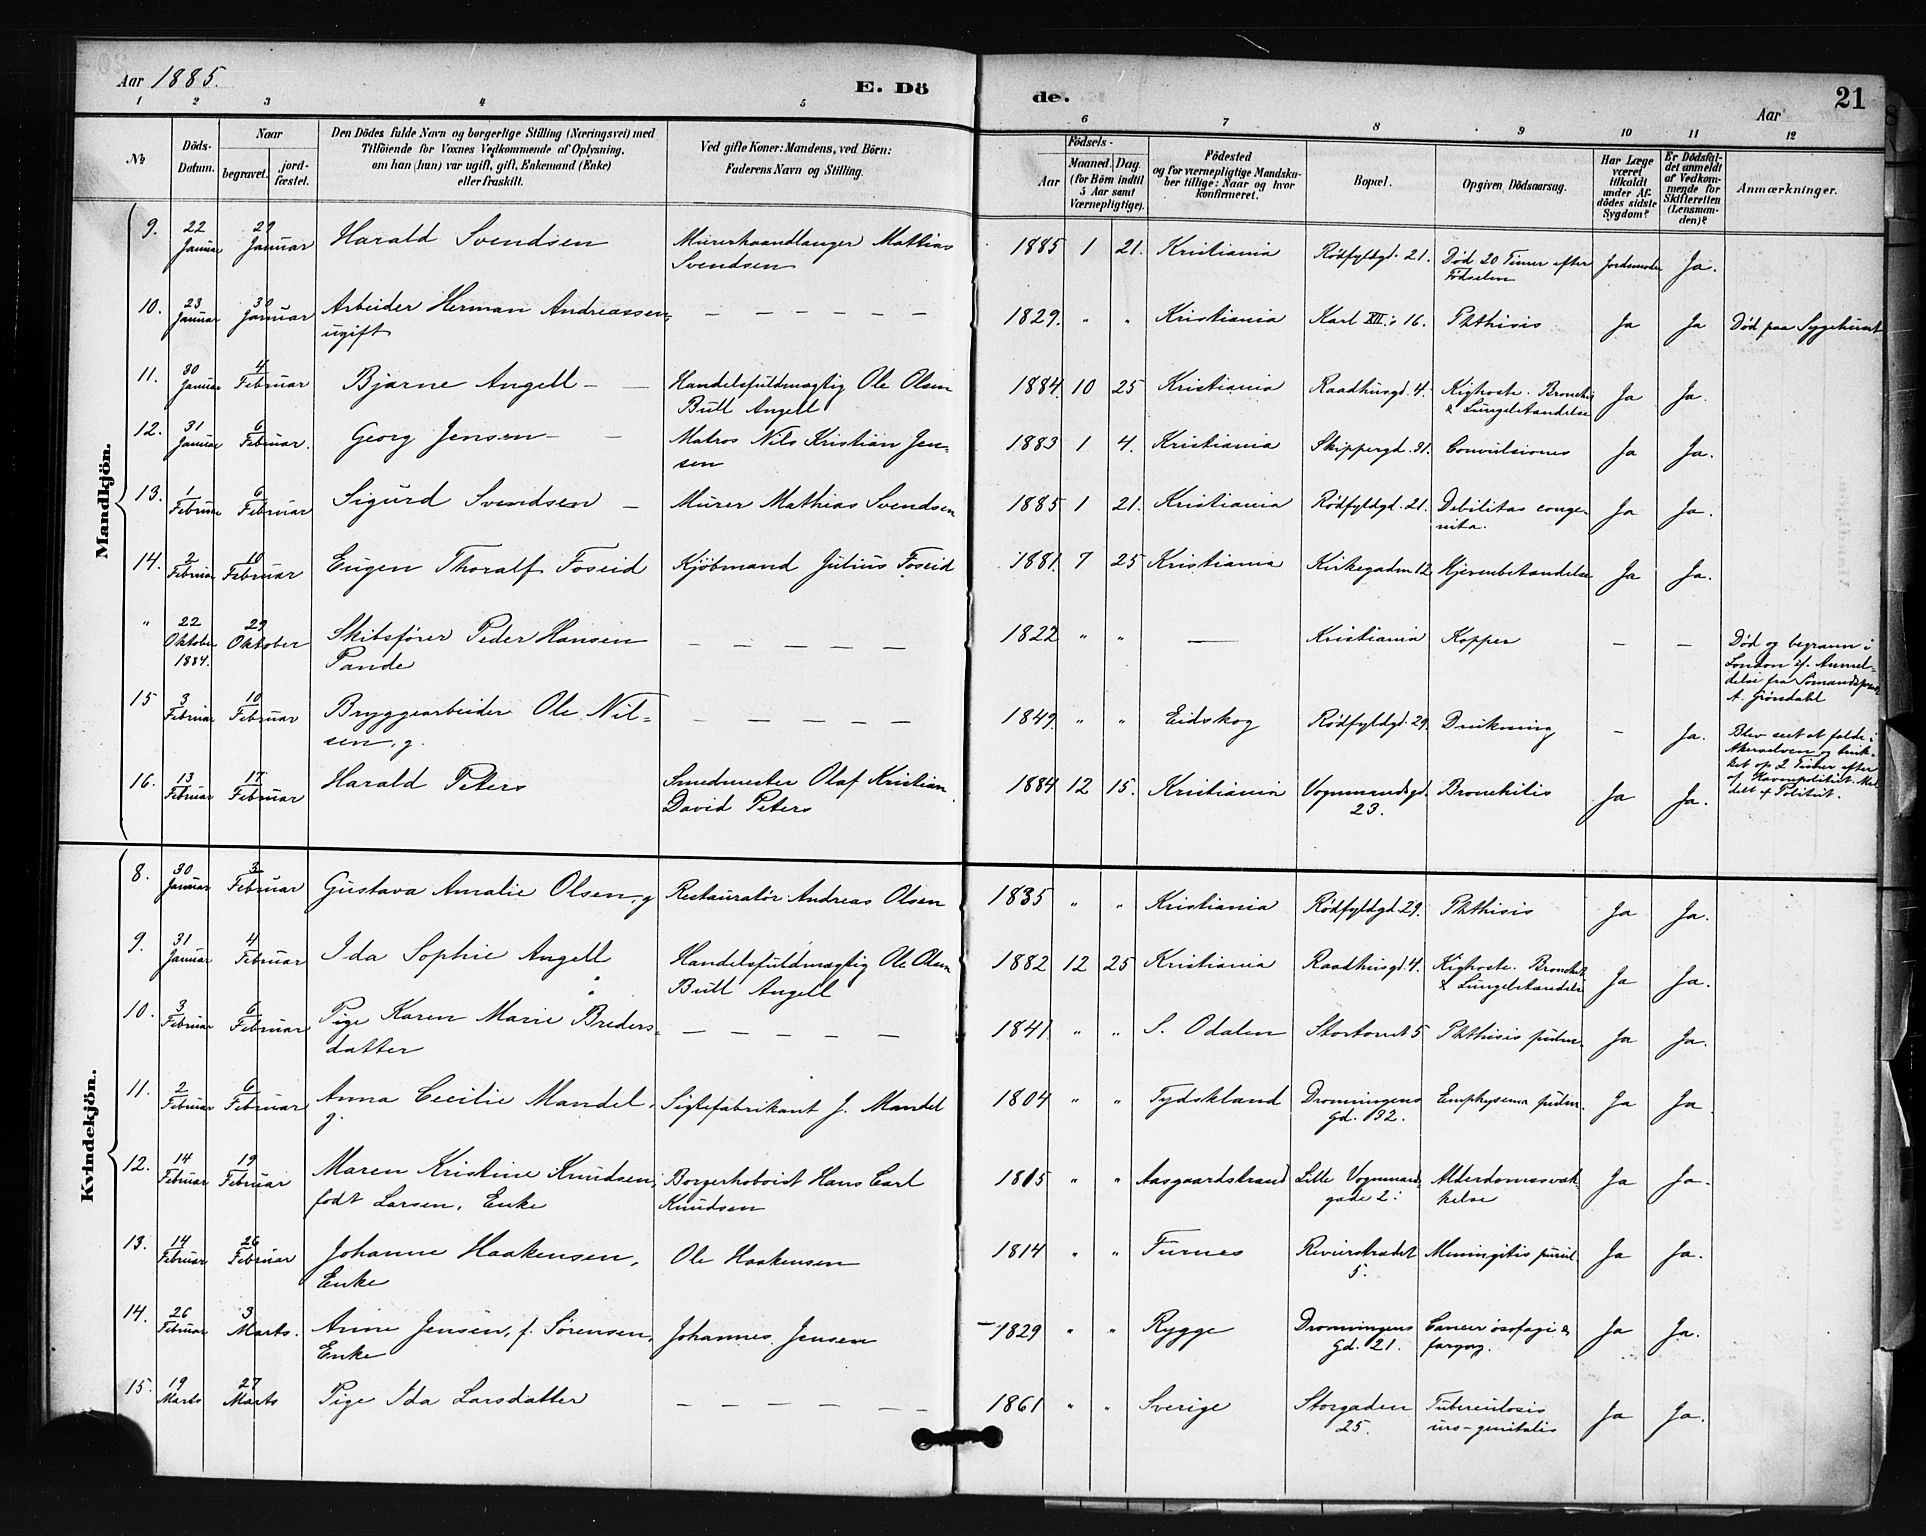 Aar 1885. E. Dö de. Aar 21
1 2 3 4 5 6 7 8 9 10 11 12
No
Döds-Datum.
Naar
begravet.
jord-fæstet.
Den Dödes fulde Navn og borgerlige Stilling (Næringsvei) med
Tilföiende for Voxnes Vedkommende af Oplysning,
om han (hun) var ugift, gift, Enkemand (Enke)
eller fraskilt.
Ved gifte Koner: Mandens, ved Börn:
Faderens Navn og Stilling.
Födsels-
Aar
Maaned. Dag.
(for Börn indtil
5 Aar samt
Værnepligtige).
Födested
og for værnepligtige Mandska-
ber tillige: Naar og hvor
konfirmeret.
Bopæl.
Opgiven Dödsaarsag.
Har Læge
været
tilkaldt
under Af-
dödes sidste
Sygdom?
Er Dödsfal-
det anmeldt
af Vedkom-
mende for
Skifteretten
(Lensman-
den)?
Anmærkninger.
Mandkjön.
9. 22 Januar 29 Januar Harald Svendsen Murerhaandlanger Mathias 1885 1 21. Kristiania Rödfyldgd. 21. Död 20 Timer efter Jordemoder Ja.
Svendsen Födselen
10. 23 Januar 30 Januar Arbeider Herman Andreassen, — — — — — 1829. " " Kristiania Karl XII:s 16. Phthisis Ja Ja Död paa Sygehuset
ugift
11. 30 Januar 4 Februar Bjarne Angell — — Handelsfuldmægtig Ole Olsen 1884 10 25 Kristiania Raadhusgd. 4. Kighoste. Bronchit Ja Ja.
Bull Angell & Lungebetændelse
12. 31 Januar 6 Februar. Georg Jensen — — Matros Nils Kristian Jen- 1883 1 4. Kristiania Skippergd. 31. Convulsiones Ja Ja.
sen
13. 1 Februar 6 Februar Sigurd Svendsen — Murer Mathias Svendsen 1885 1 21. Kristiania Rödfyldgd. 21. Debilitas conge- Ja Ja.
nita.
14. 2 Februar 10 Februar Eugen Thoralf Foseid Kjöbmand Julius Foseid 1881. 7 25 Kristiania Kirkegaden 12 Hjernebetændelse Ja Ja.
" 22 Oktober 1884. 29 Oktober Skibsförer Peder Hansen — — — — — 1822 " " — Kristiania Kopper — — Död og begraven i
Pande London if. Anmel-
delse fra Sömandsprest
A. Gjörsdahl
15 3 Februar 10 Februar Bryggearbeider Ole Nil- — — — — — 1849. " " Eidskog Rödfyldgd. 29. Drukning — Ja. Blev seet at falde i
sen, g. Akerselven og truk-
ket op 2 Timer efter
af Havnepolitiet. Mel-
delt af Politiet.
16. 13 Februar 17 Februar Harald Peters Smedmester Olaf Kristian 1884 12 15. Kristiania Vognmandsgd. Bronchitis Ja Ja.
David Peters 23.
Kvindekjön.
8. 30 Januar 3 Februar Gustava Amalie Olsen, g Restauratör Andreas Olsen 1835 " " Kristiania Rödfyldgd. 29. Phthisis Ja Ja.
9. 31 Januar 4 Februar Ida Sophie Angell Handelsfuldmægtig Ole Olsen 1882 12 25 Kristiania Raadhusgd. 4. Kighoste. Bronchit Ja Ja.
Bull Angell & Lungebetændelse
10. 3 Februar 6 Februar Pige Karen Marie Breders- — — — — — 1841. " " S. Odalen Stortorvet 5 Phthisis pulm. Ja Ja.
datter
11. 2 Februar 6 Februar Anna Cecilie Mandel, Siglefabrikant J. Mandel 1804 " " Tydskland Dronningens Emphysema pulm. Ja Ja
g. gd. 132.
12. 14 Februar 19 Februar Maren Kristine Knudsen, Borgerhoboist Hans Carl 1815 " " Aasgaardstrand Lille Vognmands- Alderdomssvæk- Ja Ja.
födt Larsen, Enke Knudsen gade 2. kelse
13. 14 Februar 26 Februar Johanne Haakensen, Ole Haakensen 1814 " " Furnes Revierstrædet Meningitis purul. Ja Ja.
Enke 5.
14. 26 Februar 3 Marts. Anne Jensen, f. Sörensen, Johannes Jensen —1829 " " Rygge Dronningens Cancer ösofagi & Ja Ja.
Enke Gd. 21.
15. 19 Marts 27 Marts Pige Ida Larsdatter — — — — — — 1861 " " Sverige Storgaden Tuberculosis Ja Ja.
25. uro-genitalis